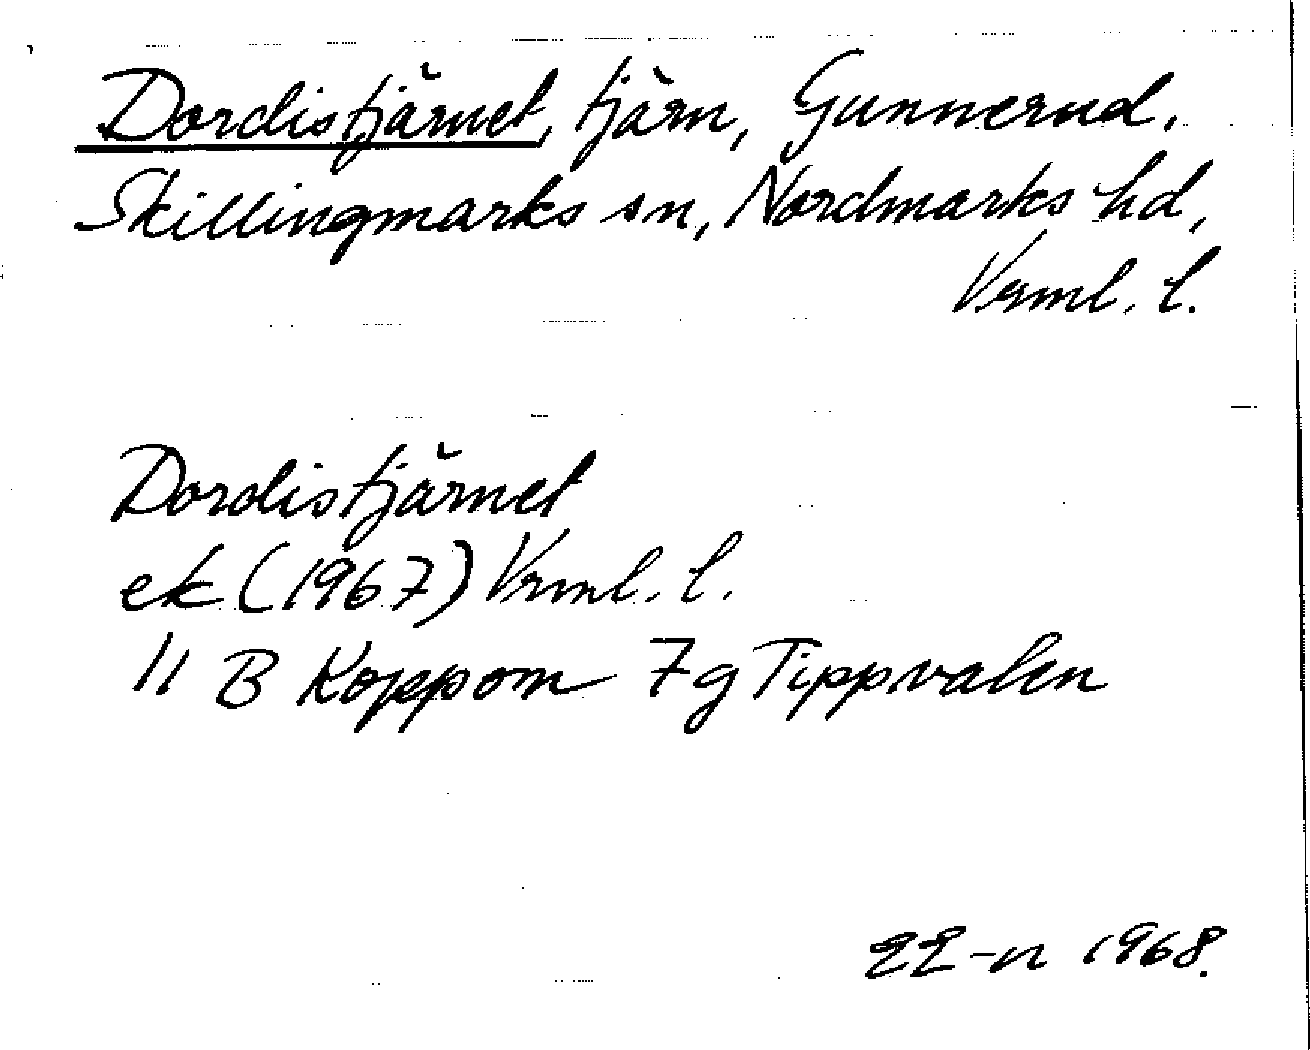 Dordistjärnet, tjärn, Gunnerud,
Skillingmarks sn, Nordmarks hd,
Vrml. l.
Dordistjärnet
ek (1967) Vrml. l.
11 B Koppom 7 g Tippvalen
1968.